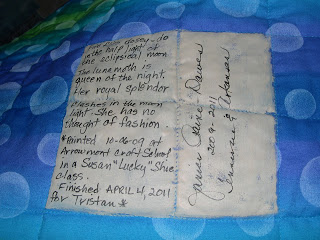 in the half light of
the eclipsical moon.
The luna moth is
queen of the night.
Her royal splendor
in the moon
light. She has no
thought of fashion.
*Painted 10-06-09 at
Arrowmont Craft School
in a Susan "Lucky" Shie
class.
Finished APRIL 4, 2011
for Tristan *
Dawes
2009-2011